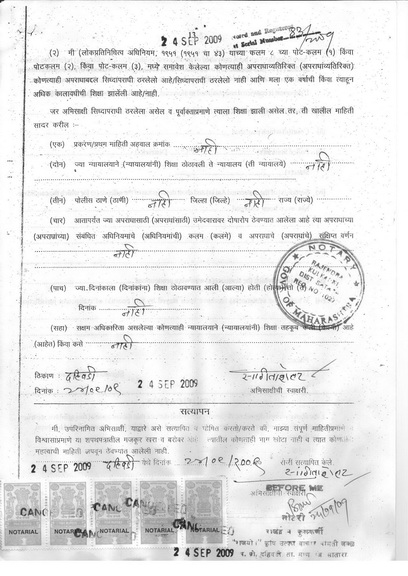 2 4 SEP 2009
(२) मी (लोकप्रतिनिधित्व अधिनियम, १९५१ (१९५१ चा ४३) याच्या कलम ८ च्या पोट-कलम (१) किंवा
पोटकलम (२), किंवा पोट-कलम (३), मध्ये समावेश केलेल्या कोणत्याही अपराधाव्यतिरिक्त (अपराधांव्यतिरिक्त)
कोणत्याही अपराधाबद्दल सिध्दापराधी ठरलेलो आहे/सिध्दापराधी ठरलेलो नाही आणि मला एक वर्षाची किंवा त्याहून
अधिक कालावधीची शिक्षा झालेली आहे/नाही.
जर अभिसाक्षी सिध्दापराधी ठरलेला असेल व पूर्वोक्ताप्रमाणे त्याला शिक्षा झाली असेल तर, ती खालील माहिती
सादर करील :-
(एक) प्रकरण/प्रथम माहिती अहवाल क्रमांक नाही
(दोन) ज्या न्यायालयाने (न्यायालयांनी) शिक्षा ठोठावली ते न्यायालय (ती न्यायालये) नाही
(तीन) पोलीस ठाणे (ठाणी) नाही जिल्हा (जिल्हे) नाही राज्य (राज्ये)
(चार) आतापर्यंत ज्या अपराधासाठी (अपराधांसाठी) उमेदवारावर दोषारोप ठेवण्यात आलेला आहे त्या अपराधाच्या
(अपराधांच्या) संबंधित अधिनियमाचे (अधिनियमांची) कलम (कलमे) व अपराधाचे (अपराधांचे) संक्षिप्त वर्णन
नाही
(पाच) ज्या दिनांकाला (दिनांकांना) शिक्षा ठोठावण्यात आली (आल्या) होती (होत्या) तो
दिनांक नाही
(सहा) सक्षम अधिकारिता असलेल्या कोणत्याही न्यायालयाने (न्यायालयांनी) शिक्षा तहकूब केली आहे
(आहेत) किंवा कसे नाही
NOTARY
GOVT. OF MAHARASHTRA
ठिकाण : दहिवडी
दिनांक : २४/०९/०९ 2 4 SEP 2009
अभिसाक्षीची स्वाक्षरी.
सत्यापन
मी, उपरिनामित अभिसाक्षी, याद्वारे असे सत्यापित व घोषित करतो/करते की, माझ्या संपूर्ण माहितीप्रमाणे
विश्वासाप्रमाणे या शपथपत्रातील मजकूर खरा व बरोबर
महत्वाची माहिती
2 4 SEP 2009 दहिवडी येथे दिनांक २४/०९/२००९ रोजी सत्यापित केले
BEFORE ME
अभिसाक्षीची स्वाक्षरी
नोटरी 24/09/09
NOTARIAL NOTARIAL NOTARIAL NOTARIAL NOTARIAL
2 4 SEP 2009